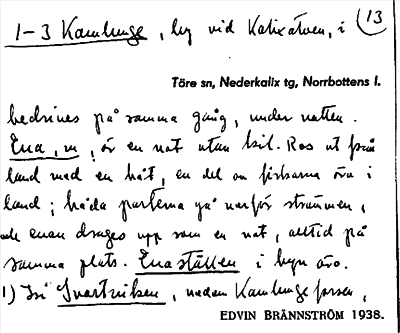 1-3 Kamlunge, by vid Kalixälven, i 13
Töre sn, Nederkalix tg, Norrbottens l.
bedrives på samma gång, under natten.
Ena, m, är en not utan kil. Ros ut från
land med en båt, en del av fiskarna äro i
land; båda parterna gå nerför strömmen,
och enan drages upp som en not, alltid på
samma plats. Enaställen i byn äro.
1) I Svartviken, nedan Kamlungeforsen,
EDVIN BRÄNNSTRÖM 1938.